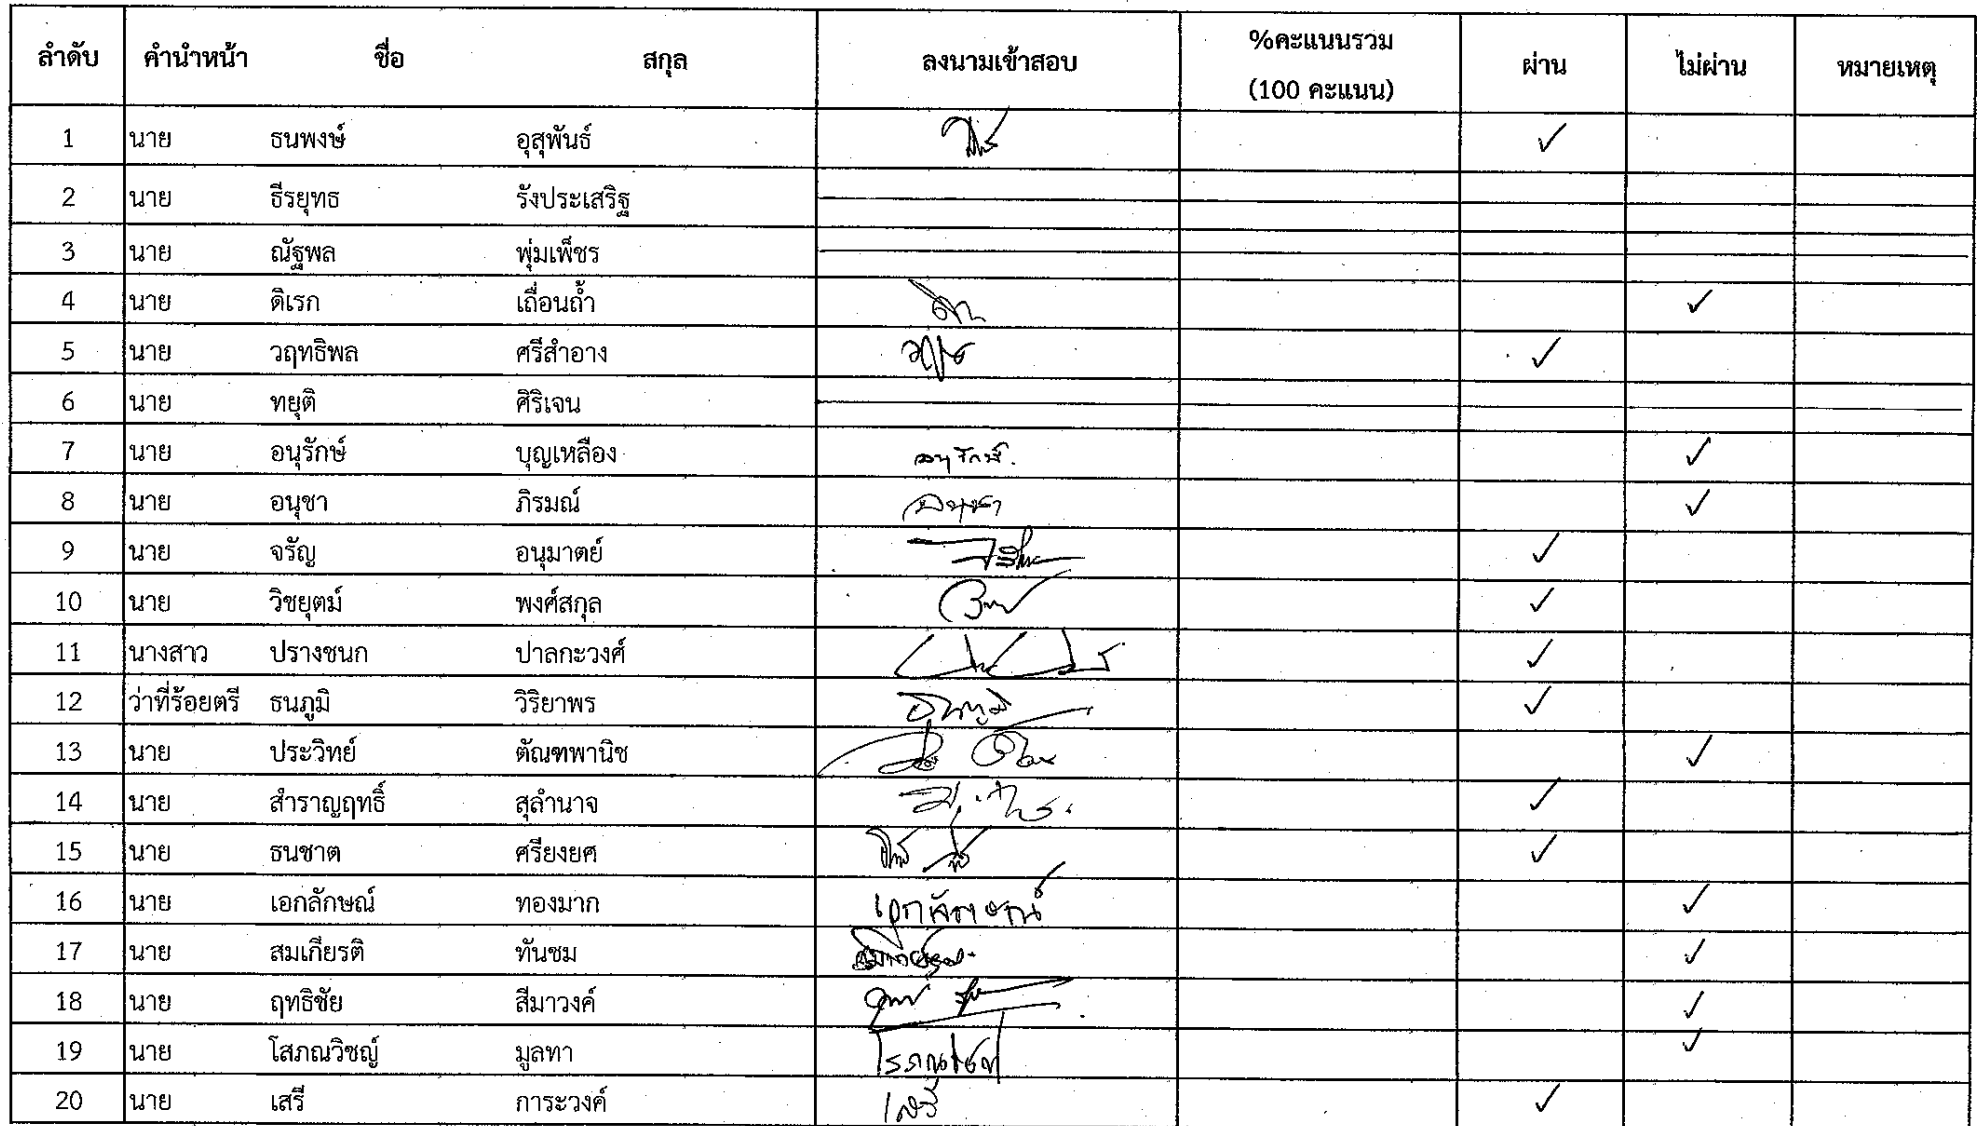 ลำดับ คำนำหน้า ชื่อ สกุล ลงนามเข้าสอบ %คะแนนรวม (100 คะแนน) ผ่าน ไม่ผ่าน หมายเหตุ
1 นาย ธนพงษ์ อุสุพันธ์ ✓
2 นาย ธีรยุทธ รังประเสริฐ
3 นาย ณัฐพล พุ่มเพ็ชร
4 นาย ดิเรก เถื่อนถ้ำ ✓
5 นาย วฤทธิพล ศรีสำอาง ✓
6 นาย ทยุติ ศิริเจน
7 นาย อนุรักษ์ บุญเหลือง อนุรักษ์ ✓
8 นาย อนุชา ภิรมณ์ อนุชา ✓
9 นาย จรัญ อนุมาตย์ ✓
10 นาย วิชยุตม์ พงศ์สกุล ✓
11 นางสาว ปรางชนก ปาลกะวงศ์ ✓
12 ว่าที่ร้อยตรี ธนภูมิ วิริยาพร ธนภูมิ ✓
13 นาย ประวิทย์ ตัณฑพานิช ✓
14 นาย สำราญฤทธิ์ สุลำนาจ ✓
15 นาย ธนชาต ศรียงยศ ✓
16 นาย เอกลักษณ์ ทองมาก เอกลักษณ์ ✓
17 นาย สมเกียรติ ทันชม ✓
18 นาย ฤทธิชัย สีมาวงค์ ✓
19 นาย โสภณวิชญ์ มูลทา ✓
20 นาย เสรี การะวงค์ เสรี ✓